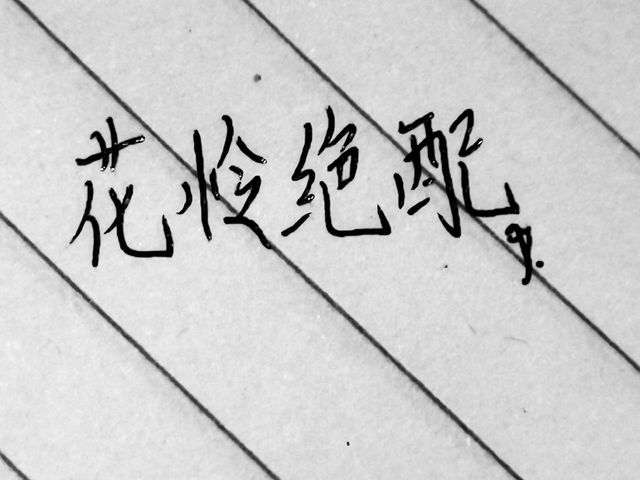 花怜绝配